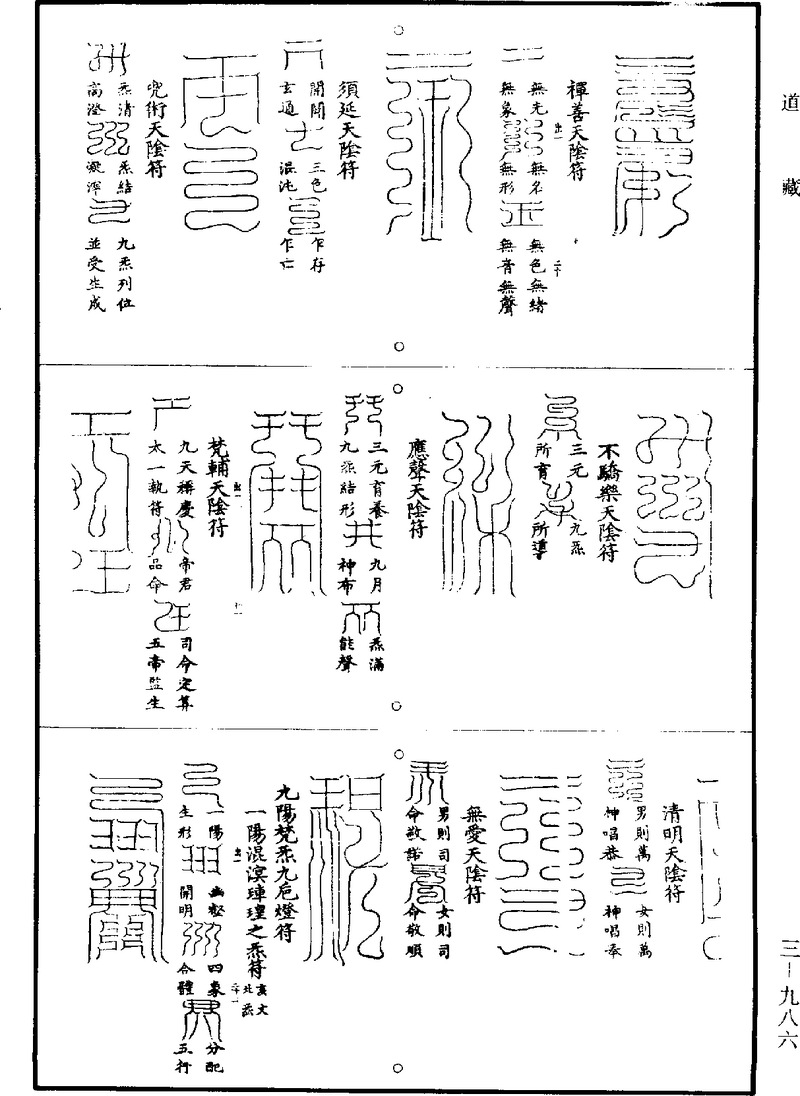 道藏
禪善天陰符
無先 無名 無色無緒
無象 無形 無音無聲
須延天陰符
三色 乍存
玄通 混沌 乍亡
兜術天陰符
炁清 炁結 九炁列位
高澄 凝渾 並受生成
不驕樂天陰符
三元 九炁
所育 所導
應聲天陰符
三元育養 九月 炁滿
九炁結形 神布 能聲
梵輔天陰符
九天稱慶 帝君 司命定算
太一執符 品命 五帝監生
清明天陰符
男則萬 女則萬
神唱恭 神唱奉
無愛天陰符
男則司 女則司
命敬諾 命敬順
九陽梵炁九卮燈符
一陽混溟瑝之炁符
一陽 四象 分配
生形 開明 合體 五行
三-九八六